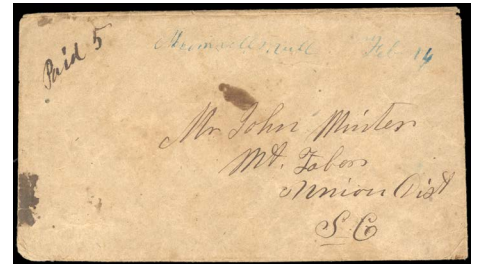 Paid 5
Feb 14
Mr John Minter
Mt. Tabor
Union Dist
S. C